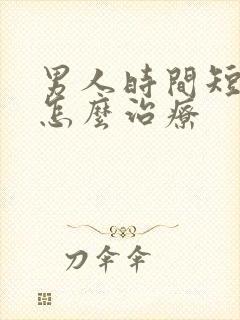 男人時間短
怎麼治療
刀伞伞